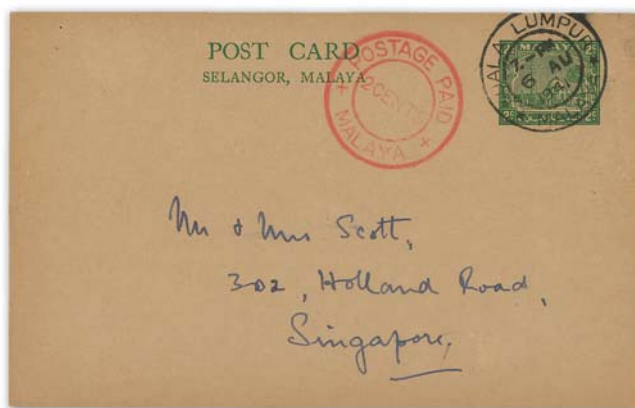 POST CARD
SELANGOR, MALAYA
POSTAGE PAID
2 CENTS
MALAYA
KUALA LUMPUR
6 AU
MALAYA
2c 2c
Mr & Mrs Scott,
302, Holland Road,
Singapore,